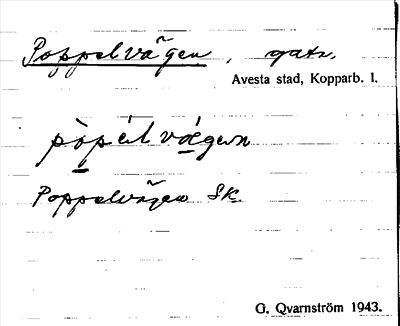 Poppelvägen, gata.
Avesta stad, Kopparb. l.
pòpélvǽgen
Poppelvägen SK
G. Qvarnström 1943.